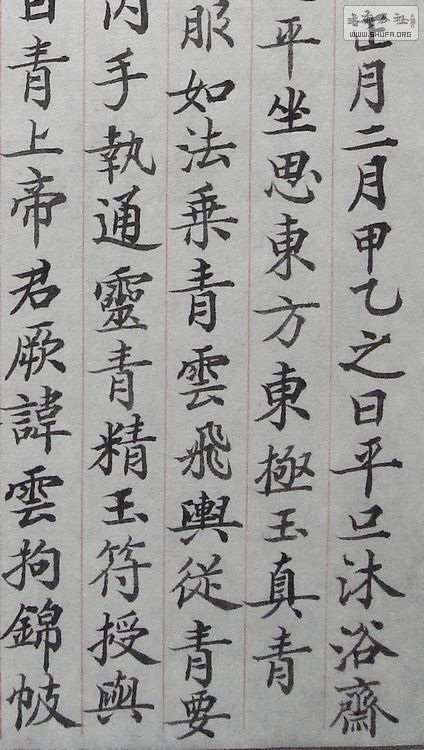 正月二月甲乙之日平旦沐浴齋
平坐思東方東極玉真青
服如法乘青雲飛輿從青要
內手執通靈青精玉符授與
曰青上帝君厥諱雲拘錦帔
WWW.SHUFA.ORG